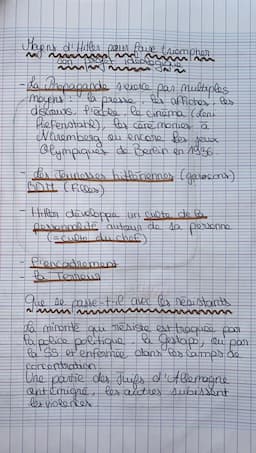 Moyens d'Hitler pour faire triompher
son projet idéologique
- La Propagande exercée par multiples
moyens : la presse, les affiches, les
discours, l'école, le cinéma (Leni
Riefenstahl), les cérémonies à
Nuremberg ou encore les jeux
Olympiques de Berlin en 1936.
- Les Jeunesses hitlériennes (garçons)
BDM (Filles)
- Hitler développe un culte de la
personnalité autour de sa personne
(= culte du chef)
- L'encadrement
- La Terreur
Que se passe-t-il avec les résistants
La minorité qui résiste est traquée par
la police politique, la Gestapo, ou par
la SS et enfermée dans les camps de
concentration.
Une partie des Juifs d'Allemagne
ont émigré, les autres subissent
les violences.